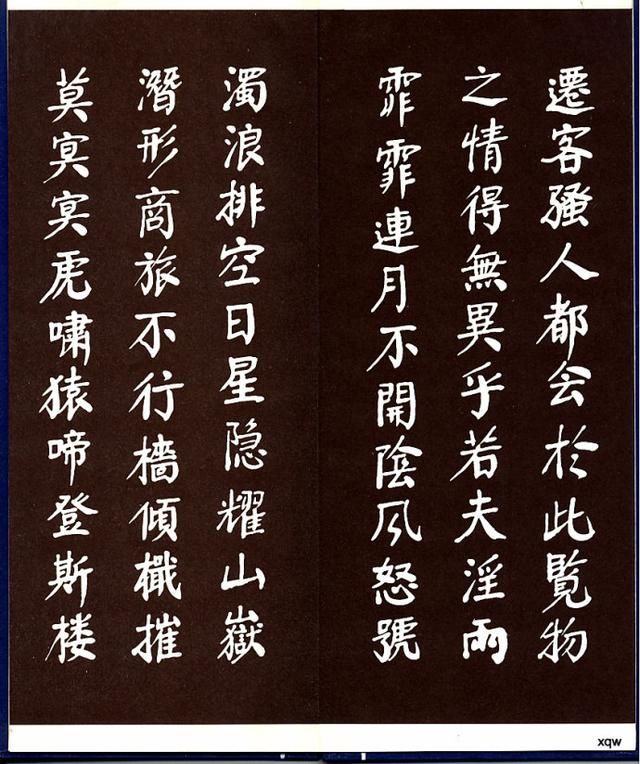 遷客騷人都会於此覽物
之情得無異乎若夫淫雨
霏霏連月不開陰风怒號
濁浪排空日星隐耀山嶽
潛形商旅不行檣傾檝摧
莫冥冥虎嘯猿啼登斯楼
xqw